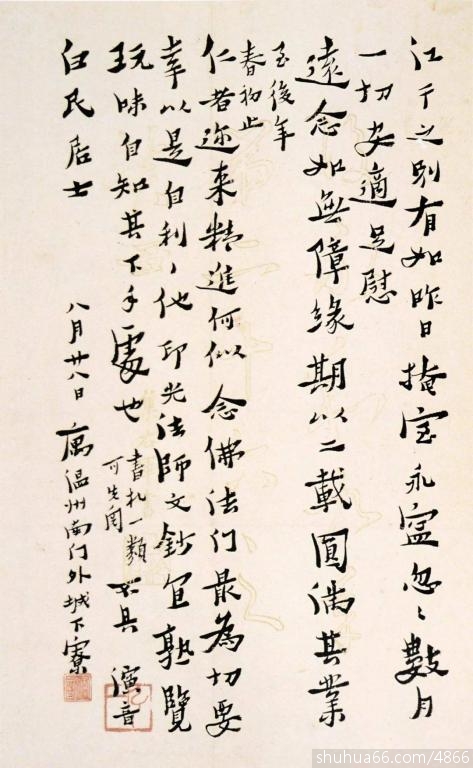 江干之别有如昨日掩室永寧忽忽數月
一切安適足慰
遠念如無障緣期以二載圓滿其業
至後年
春初止
仁者邇来精進何似念佛法门最為切要
幸以是自利利他印光法師文鈔宜熟覽
玩味自知其下手處也
書札一類
可先閲
不具 演音
白民居士
八月廿八日 寓温州南门外城下寮
shuhua66.com/4866